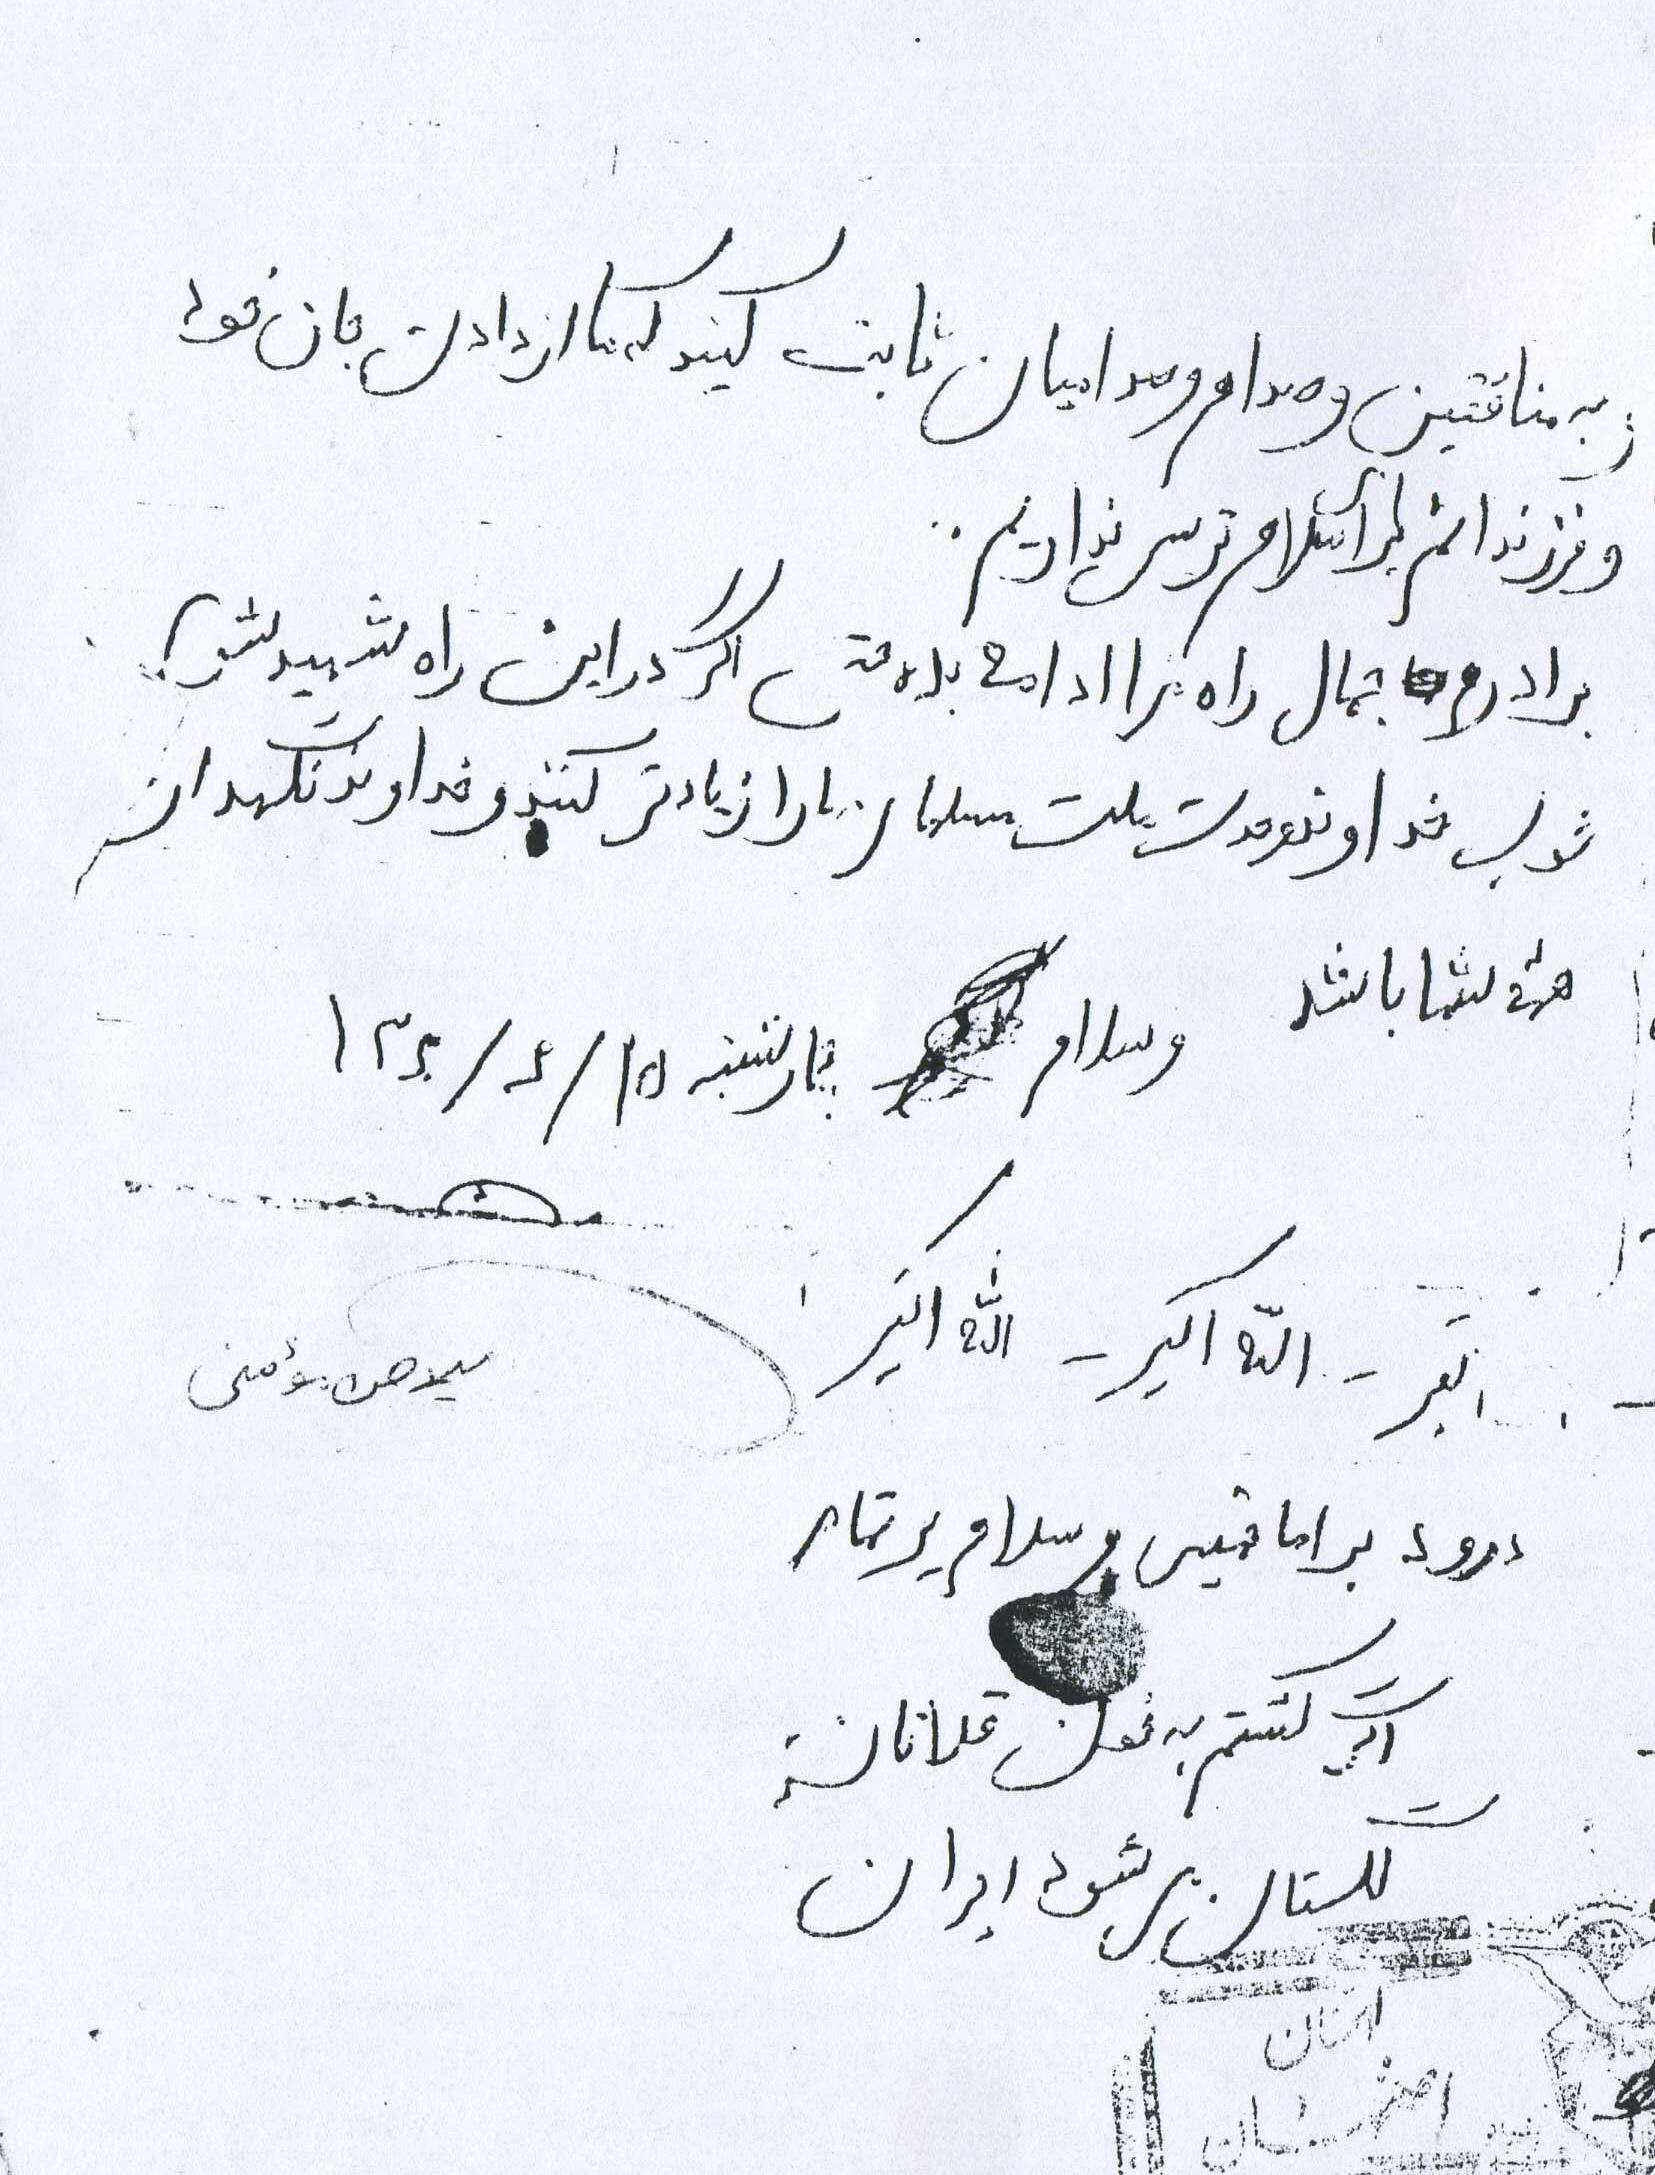 به منافقین و صدام و صدامیان ثابت کنید که ما از دادن جان خود
و فرزندانم برای اسلام ترس نداریم..
برادرم جمال راه مرا ادامه بده حتی اگر در این راه شهید شوی
خداوند وحدت ملت مسلمان ما را زیادتر کند و خداوند نگهدار
همۀ شما باشد وسلام چهارشنبه
اکبر - الله اکبر - الله اکبر
مؤمنی
درود بر امام خمینی و سلام بر تمام
اگر کشتم به خون غلتان
گلستان می شود ایران
استان
اصفهان